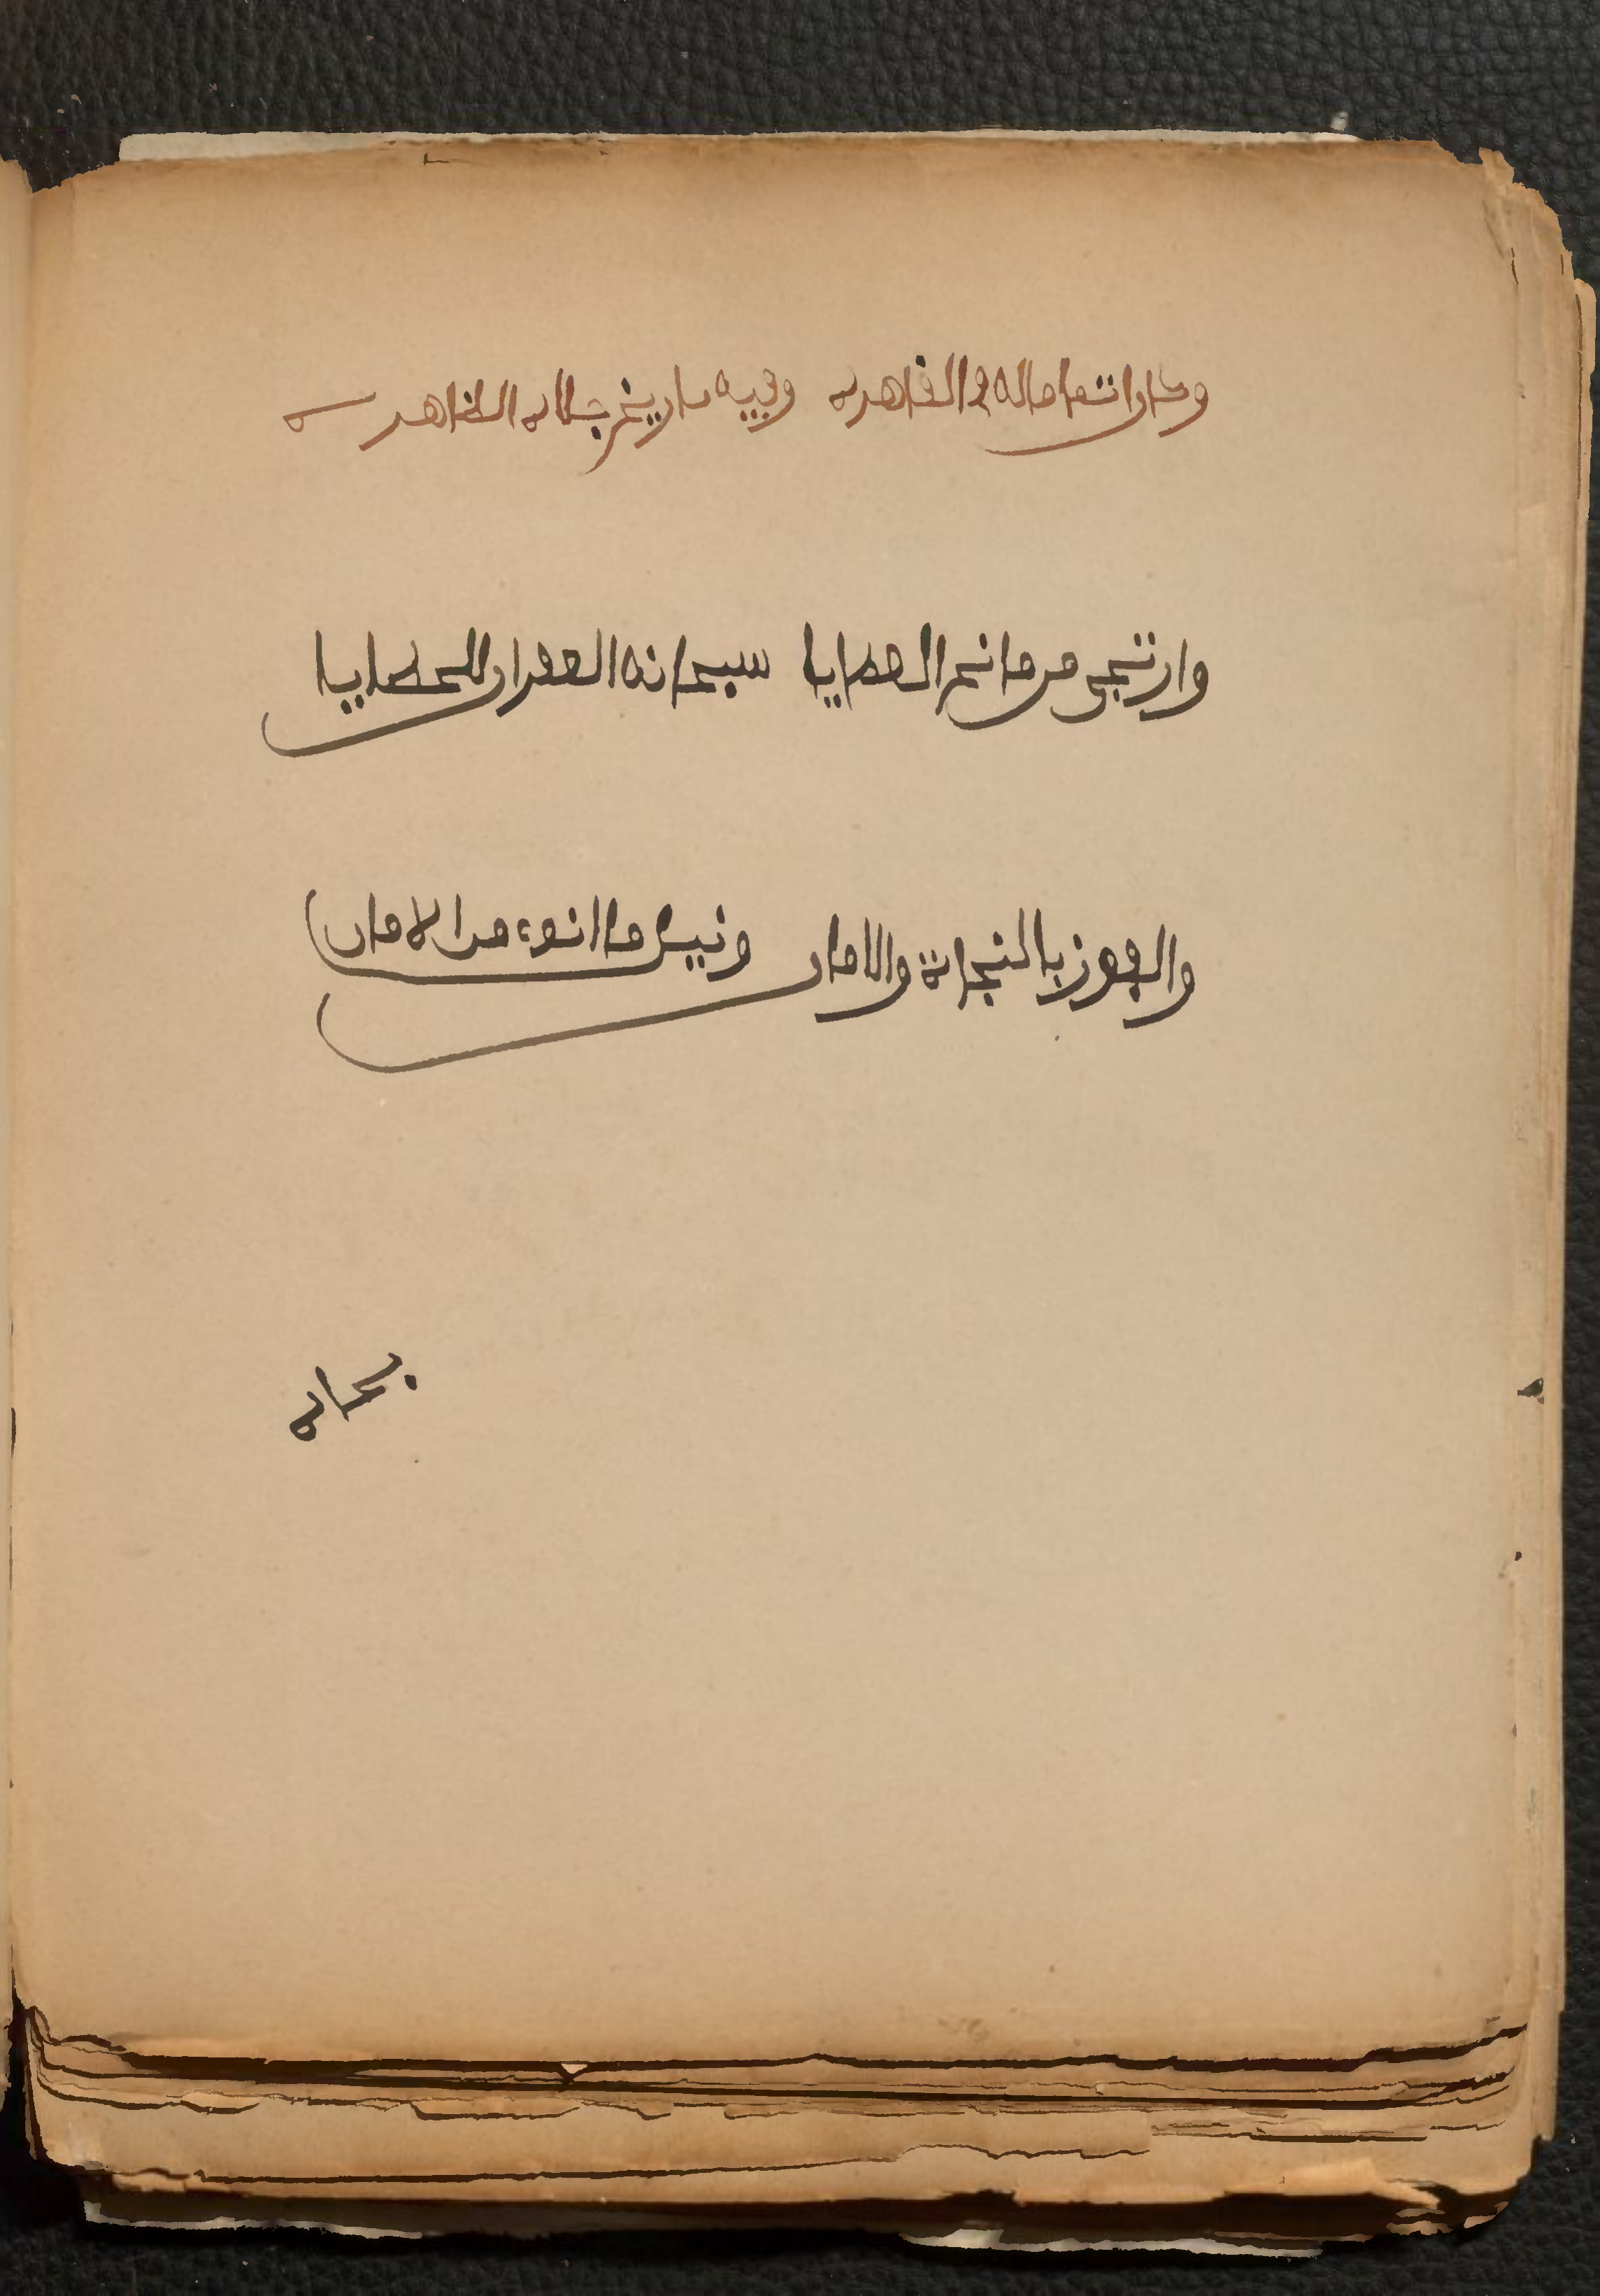 وكان اتمامه له في القاهره وفيه تاريخ جلاله الظاهره
وارتجى من مانح العطايا سبحانه الغفران للخطايا
والفوز بالنجاة والامان ونيل ما انوى من الامان
بجاه